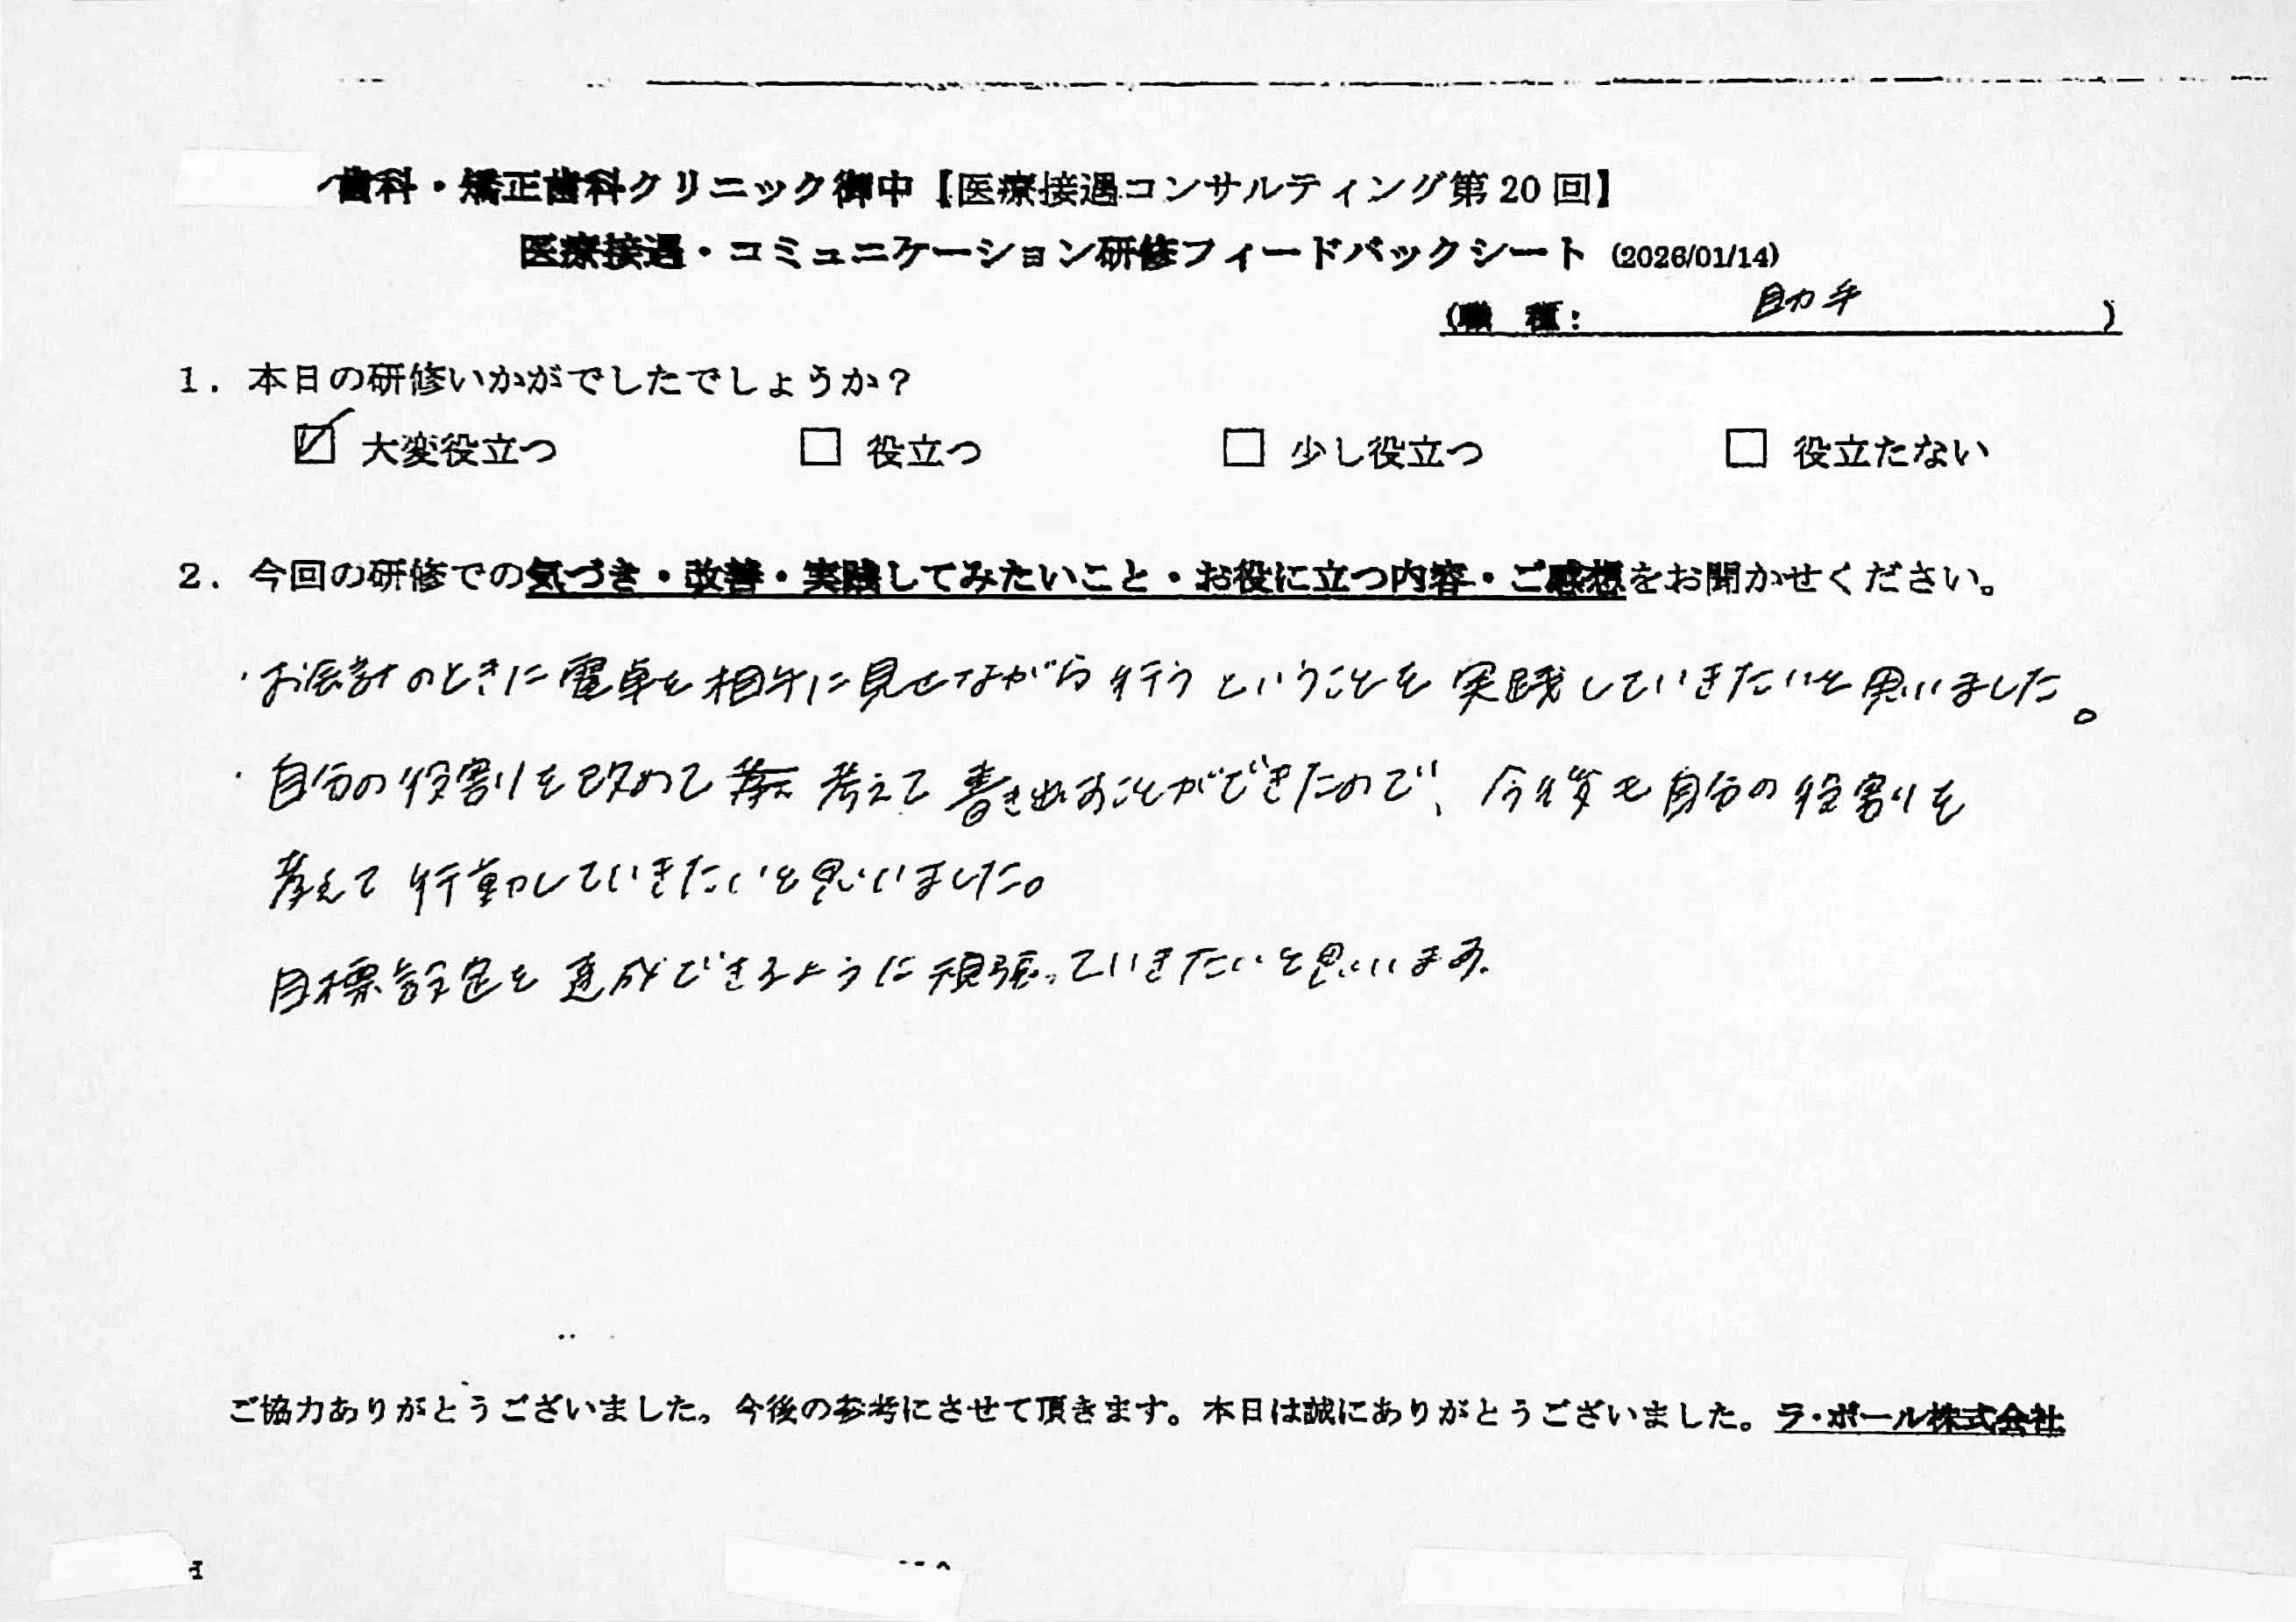 歯科・矯正歯科クリニック御中【医療接遇コンサルティング第20回】
医療接遇・コミュニケーション研修フィードバックシート (2026/01/14)
(職 種: 助手 )
1. 本日の研修いかがでしたでしょうか?
☑ 大変役立つ □ 役立つ □ 少し役立つ □ 役立たない
2. 今回の研修での気づき・改善・実践してみたいこと・お役に立つ内容・ご感想をお聞かせください。
・お会計のときに電卓を相手に見せながら行うということを実践していきたいと思いました。
・自分の役割りを改めて考えて書き出すことができたので、今後も自分の役割りを
考えて行動していきたいと思いました。
目標設定を達成できるように頑張っていきたいと思います。
ご協力ありがとうございました。今後の参考にさせて頂きます。本日は誠にありがとうございました。ラ・ポール株式会社